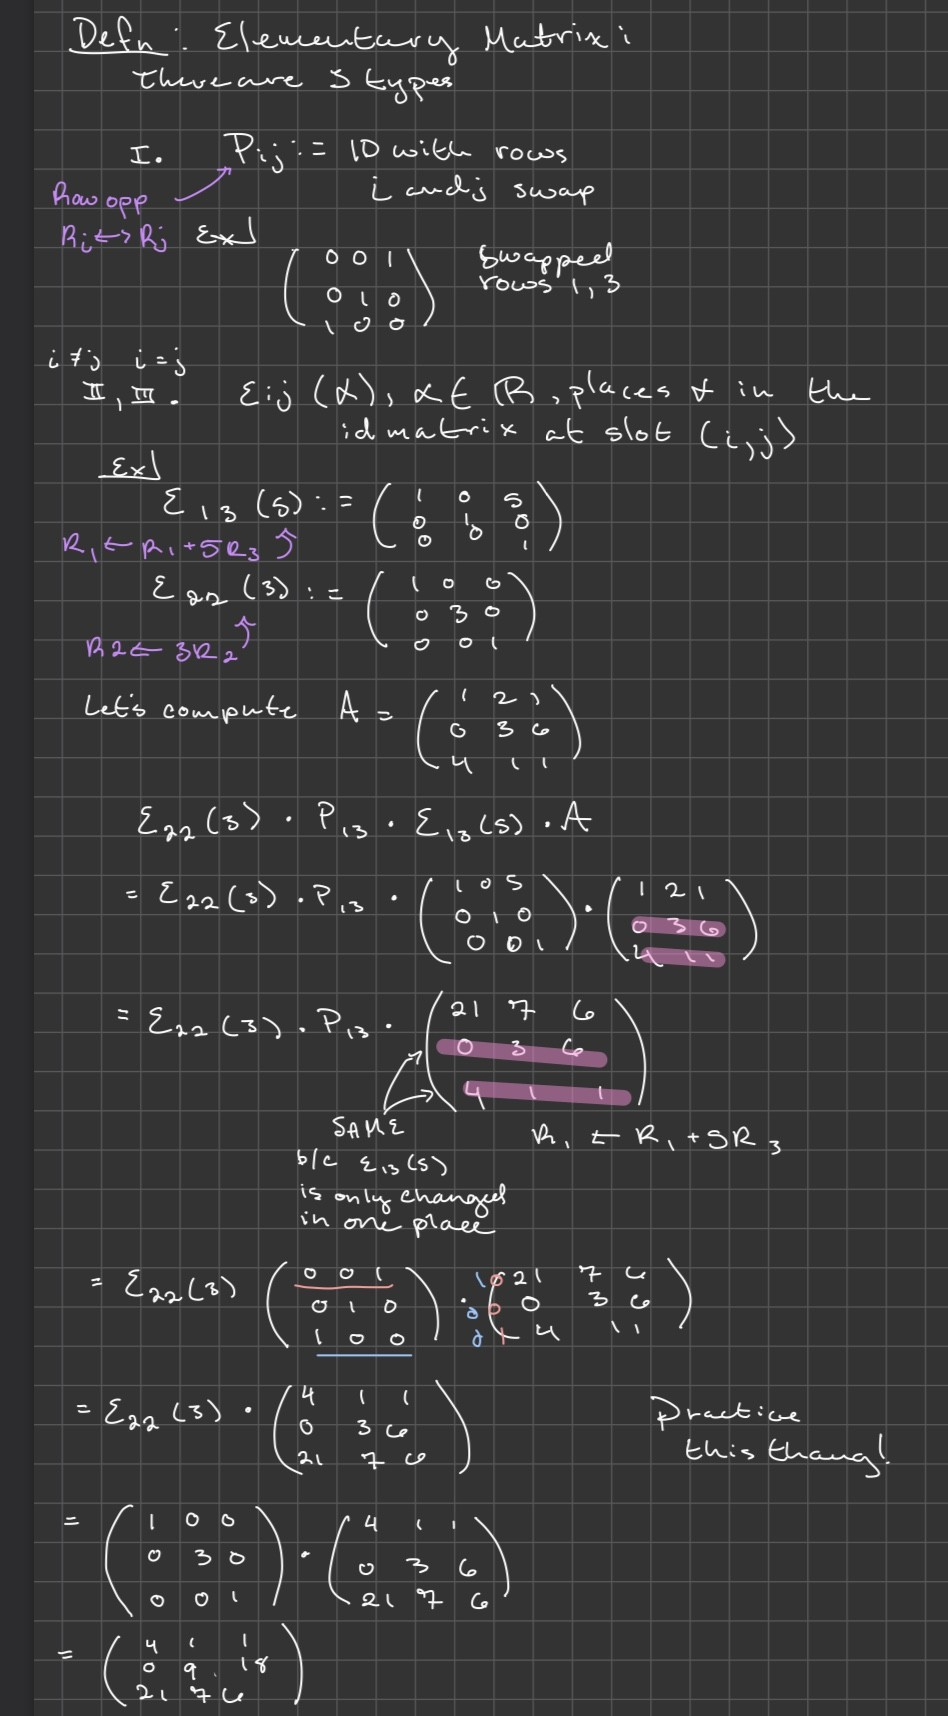 Defn: Elementary Matrix:
There are 3 types
I. Pij := ID with rows
i and j swap
Row opp
Ri ↔ Rj Ex]
( 0 0 1 ) swapped
( 0 1 0 ) rows 1, 3
( 1 0 0 )
i ≠ j i = j
II, III. Eij (α), α ∈ ℝ, places α in the
id matrix at slot (i,j)
Ex]
E13 (5) := ( 1 0 5 )
( 0 1 0 )
( 0 0 1 )
R1 ← R1 + 5R3
E22 (3) := ( 1 0 0 )
( 0 3 0 )
( 0 0 1 )
R2 ← 3R2
Let's compute A = ( 1 2 1 )
( 0 3 6 )
( 4 1 1 )
E22 (3) · P13 · E13 (5) · A
= E22 (3) · P13 · ( 1 0 5 ) · ( 1 2 1 )
( 0 1 0 ) ( 0 3 6 )
( 0 0 1 ) ( 4 1 1 )
= E22 (3) · P13 · ( 21 7 6 )
( 0 3 6 )
( 4 1 1 )
SAME
R1 ← R1 + 5R3
b/c E13 (5)
is only changed
in one place
= E22 (3) ( 0 0 1 ) · 1 0 ( 21 7 6 )
( 0 1 0 ) 0 0 ( 0 3 6 )
( 1 0 0 ) 0 1 ( 4 1 1 )
= E22 (3) · ( 4 1 1 )
( 0 3 6 )
( 21 7 6 )
Practice
this thang!
= ( 1 0 0 ) · ( 4 1 1 )
( 0 3 0 ) ( 0 3 6 )
( 0 0 1 ) ( 21 7 6 )
= ( 4 1 1 )
( 0 9 18 )
( 21 7 6 )